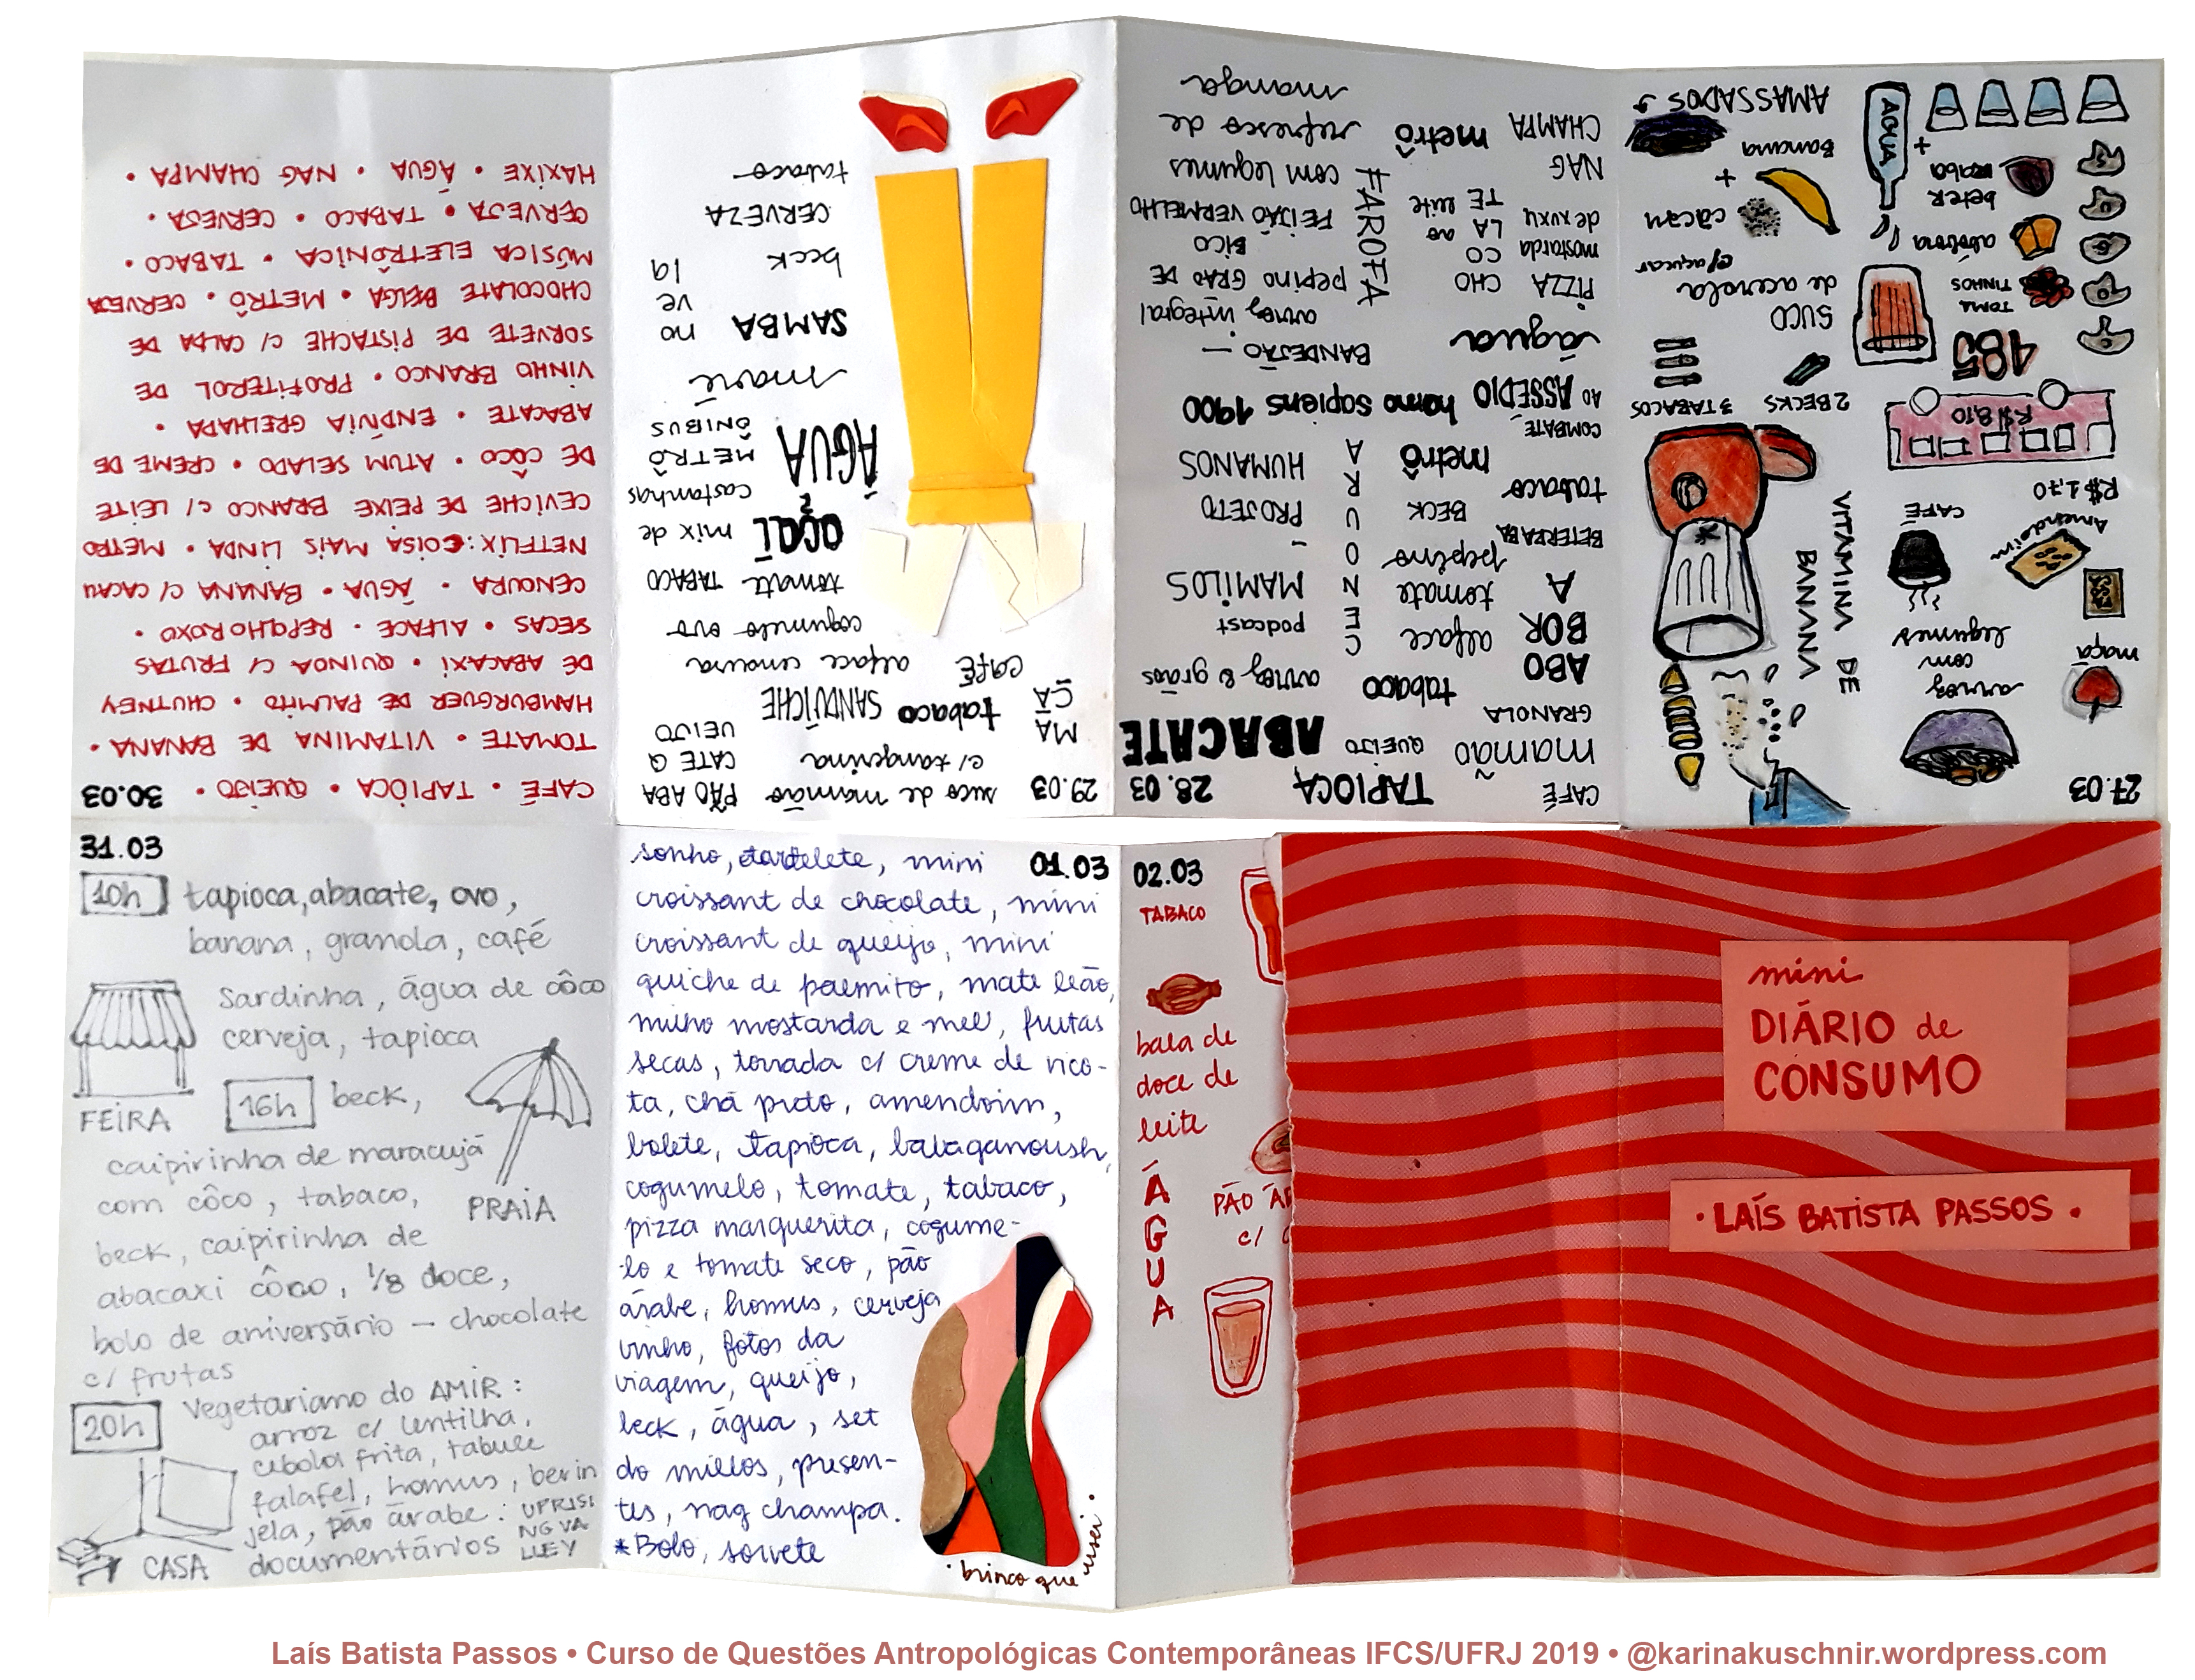 mini
DIÁRIO de
CONSUMO
• LAÍS BATISTA PASSOS •
27.03
arroz
com
legumes
maçã
CAFÉ
Amendoim
R$1,70
R$ 8,10
485
TOMA
TINHOS
abóbora
beter
raba
+
ÁGUA
VITAMINA DE
BANANA
2 BECKS
3 TABACOS
SUCO
de acerola
c/açucar
cacau
+
Banana
AMASSADOS
28.03
CAFÉ
TAPIOCA
mamão
QUEIJO
ABACATE
GRANOLA
ABO
BOR
A
tabaco
arroz & grãos
alface
tomate
pepino
BETERRABA
CENOURA
podcast
MAMILOS
PROJETO
HUMANOS
BECK
tabaco
metrô
COMBATE
AO ASSÉDIO
homo sapiens 1900
água
BANDEJÃO —
arroz integral
pepino GRÃO DE
BICO
FEIJÃO VERMELHO
com legumes
FAROFA
PIZZA
CHO
CO
LA
TE
ao
leite
mostarda
de xuxu
NAG
CHAMPA
metrô
refresco de
manga
29.03
suco de mamão
c/ tangerina
PÃO ABA
CATE Q
UEIJO
MA
ÇÃ
tabaco
SANDUÍCHE
CAFÉ
alface cenoura
cogumelo ovo
tomate
TABACO
açaí
mix de
castanhas
ÁGUA
METRÔ
ÔNIBUS
maré
SAMBA
no
ve
la
beck
CERVEZA
tabaco
30.03
CAFÉ • TAPIOCA • QUEIJO •
TOMATE • VITAMINA DE BANANA •
HAMBURGUER DE PALMITO • CHUTNEY
DE ABACAXI • QUINOA C/ FRUTAS
SECAS • ALFACE • REPOLHO ROXO •
CENOURA • ÁGUA • BANANA C/ CACAU
NETFLIX: COISA MAIS LINDA • METRO
CEVICHE DE PEIXE BRANCO C/ LEITE
DE CÔCO • ATUM SELADO • CREME DE
ABACATE • ENDIVIA GRELHADA •
VINHO BRANCO • PROFITEROL DE
SORVETE DE PISTACHE C/ CALDA DE
CHOCOLATE BELGA • METRÔ • CERVEJA
MÚSICA ELETRÔNICA • TABACO •
CERVEJA • TABACO • CERVESA •
HAXIXE • ÁGUA • NAG CHAMPA •
31.03
10h tapioca, abacate, ovo,
banana, granola, café
sardinha, água de côco
cerveja, tapioca
FEIRA
16h beck,
caipirinha de maracujá
com côco, tabaco,
PRAIA
beck, caipirinha de
abacaxi côco, 1/8 doce,
bolo de aniversário — chocolate
c/ frutas
20h
Vegetariano do AMIR:
arroz c/ lentilha,
cebola frita, tabule
falafel, homus, berin
jela, pão árabe:
documentários
UPRISI
NG VA
LLEY
CASA
01.03
sonho, tartelete, mini
croissant de chocolate, mini
croissant de queijo, mini
quiche de palmito, mate leão,
milho mostarda e mel, frutas
secas, torrada c/ creme de rico-
ta, chá preto, amendoim,
bolete, tapioca, babaganoush,
cogumelo, tomate, tabaco,
pizza marguerita, cogume-
lo e tomate seco, pão
árabe, homus, cerveja
vinho, fotos da
viagem, queijo,
beck, água, set
do millos, presen-
tes, nag champa.
*Bolo, sorvete
• brinco que usei •
02.03
TABACO
bala de
doce de
leite
ÁGUA
PÃO ÁR
c/
Laís Batista Passos • Curso de Questões Antropológicas Contemporâneas IFCS/UFRJ 2019 • @karinakuschnir.wordpress.com